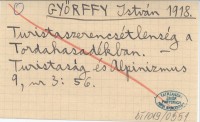 GYÖRFFY István 1918.
Turistaszerencsétlenség a
Tordahasadékban. —
Turistaság és Alpinizmus
9, nr 3: 56.